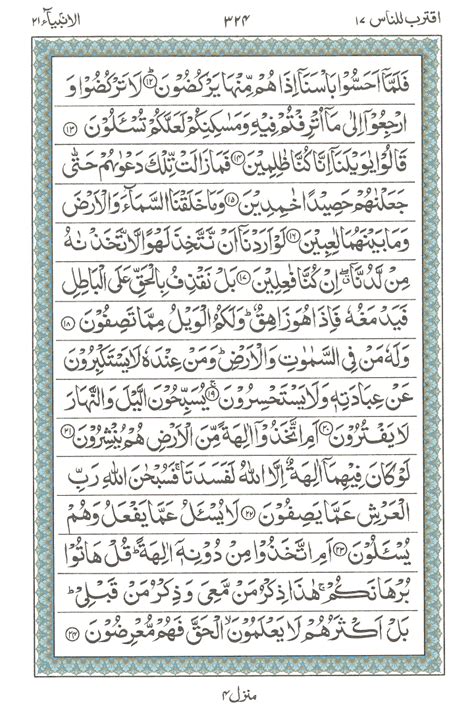 اقترب للناس ١٧
٣٢٤
الانبیآء ٢١
فَلَمَّاۤ اَحَسُّوْا بَاْسَنَاۤ اِذَا هُمْ مِّنْهَا یَرْكُضُوْنَ ﴿١٢﴾ لَا تَرْكُضُوْا وَ
ارْجِعُوْۤا اِلٰى مَاۤ اُتْرِفْتُمْ فِیْهِ وَمَسٰكِنِكُمْ لَعَلَّكُمْ تُسْئَلُوْنَ ﴿١٣﴾
قَالُوْا یٰوَیْلَنَاۤ اِنَّا كُنَّا ظٰلِمِیْنَ ﴿١٤﴾ فَمَا زَالَتْ تِّلْكَ دَعْوٰىهُمْ حَتّٰى
جَعَلْنٰهُمْ حَصِیْدًا خٰمِدِیْنَ ﴿١٥﴾ وَمَا خَلَقْنَا السَّمَآءَ وَالْاَرْضَ
وَمَا بَیْنَهُمَا لٰعِبِیْنَ ﴿١٦﴾ لَوْ اَرَدْنَاۤ اَنْ نَّتَّخِذَ لَهْوًا لَّاتَّخَذْنٰهُ
مِنْ لَّدُنَّاۤ ۖ اِنْ كُنَّا فٰعِلِیْنَ ﴿١٧﴾ بَلْ نَقْذِفُ بِالْحَقِّ عَلَى الْبَاطِلِ
فَیَدْمَغُهٗ فَاِذَا هُوَ زَاهِقٌ ؕ وَلَكُمُ الْوَیْلُ مِمَّا تَصِفُوْنَ ﴿١٨﴾
وَلَهٗ مَنْ فِی السَّمٰوٰتِ وَالْاَرْضِ ؕ وَمَنْ عِنْدَهٗ لَا یَسْتَكْبِرُوْنَ
عَنْ عِبَادَتِهٖ وَلَا یَسْتَحْسِرُوْنَ ﴿١٩﴾ یُسَبِّحُوْنَ الَّیْلَ وَالنَّهَارَ
لَا یَفْتُرُوْنَ ﴿٢٠﴾ اَمِ اتَّخَذُوْۤا اٰلِهَةً مِّنَ الْاَرْضِ هُمْ یُنْشِرُوْنَ ﴿٢١﴾
لَوْ كَانَ فِیْهِمَاۤ اٰلِهَةٌ اِلَّا اللّٰهُ لَفَسَدَتَا ۚ فَسُبْحٰنَ اللّٰهِ رَبِّ
الْعَرْشِ عَمَّا یَصِفُوْنَ ﴿٢٢﴾ لَا یُسْئَلُ عَمَّا یَفْعَلُ وَهُمْ
یُسْئَلُوْنَ ﴿٢٣﴾ اَمِ اتَّخَذُوْا مِنْ دُوْنِهٖۤ اٰلِهَةً ؕ قُلْ هَاتُوْا
بُرْهَانَكُمْ ۚ هٰذَا ذِكْرُ مَنْ مَّعِیَ وَذِكْرُ مَنْ قَبْلِیْ ؕ
بَلْ اَكْثَرُهُمْ لَا یَعْلَمُوْنَ ۙ الْحَقَّ فَهُمْ مُّعْرِضُوْنَ ﴿٢٤﴾
منزل ٤